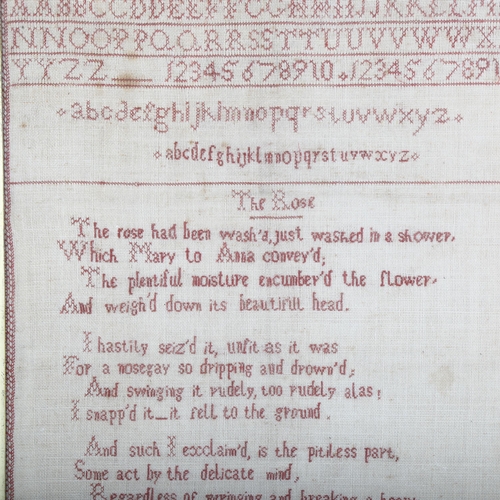 AABBCCDDEEFFGGHHIIJJKKLL
NNOOPPQQRRSSTTUUVVWWX
YYZZ 12345678910.123456789
abcdefghijklmnopqrstuvwxyz
abcdefghijklmnopqrstuvwxyz
The Rose
The rose had been wash'd, just washed in a shower,
Which Mary to Anna convey'd;
The plentiful moisture encumber'd the flower,
And weigh'd down its beautiful head.
I hastily seiz'd it, unfit as it was
For a nosegay so dripping and drown'd;
And swinging it rudely, too rudely alas!
I snapp'd it_it fell to the ground.
And such I exclaim'd, is the pitiless part,
Some act by the delicate mind,
Regardless of wringing and breaking a heart